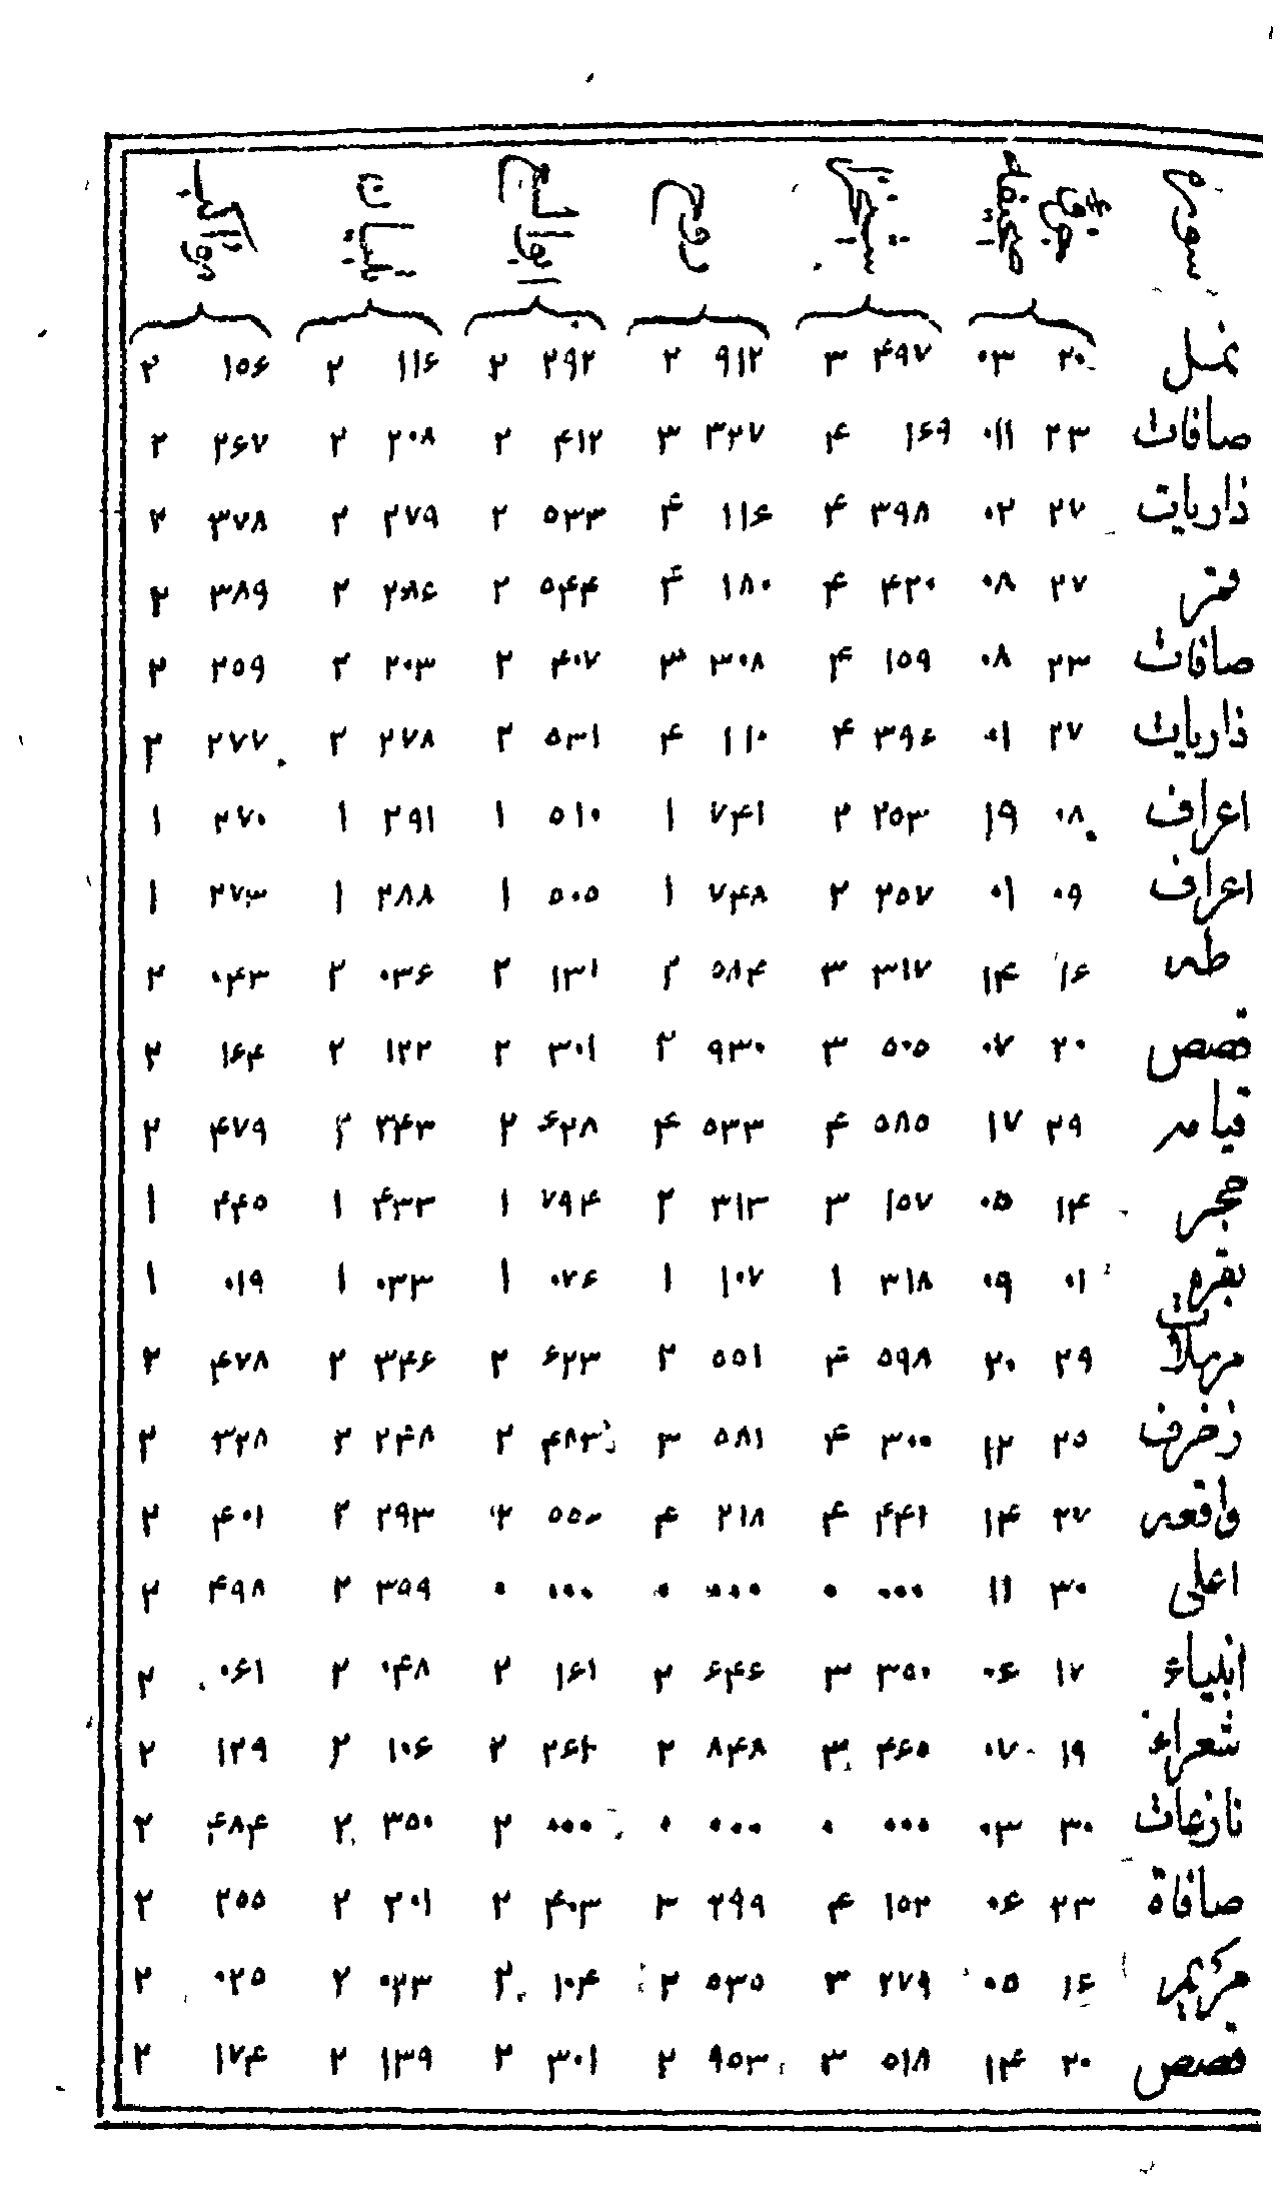 نمل ۲۰ ۰۳ ۴۹۷ ۳ ۹۱۲ ۲ ۲۹۲ ۲ ۱۱۶ ۲ ۱۵۶ ۲
صافات ۲۳ ۰۱۱ ۱۶۹ ۴ ۳۲۷ ۳ ۴۱۲ ۲ ۲۰۸ ۲ ۲۶۷ ۲
ذاریات ۲۷ ۰۲ ۳۹۸ ۴ ۱۱۶ ۴ ۵۳۳ ۲ ۲۷۹ ۲ ۳۷۸ ۲
قمر ۲۷ ۰۸ ۴۲۰ ۴ ۱۸۰ ۴ ۵۴۴ ۲ ۲۸۶ ۲ ۳۸۹ ۲
صافات ۲۳ ۰۸ ۱۵۹ ۴ ۳۰۸ ۳ ۴۰۷ ۲ ۲۰۳ ۲ ۲۵۹ ۲
ذاریات ۲۷ ۰۱ ۳۹۶ ۴ ۱۱۰ ۴ ۵۳۱ ۲ ۲۷۸ ۲ ۲۷۷ ۲
اعراف ۰۸ ۱۹ ۲۵۳ ۲ ۷۴۱ ۱ ۵۱۰ ۱ ۲۹۱ ۱ ۲۷۰ ۱
اعراف ۰۹ ۰۱ ۲۵۷ ۲ ۷۴۸ ۱ ۵۰۵ ۱ ۲۸۸ ۱ ۲۷۳ ۱
طه ۱۶ ۱۴ ۳۱۷ ۳ ۵۸۴ ۲ ۱۳۱ ۲ ۰۳۶ ۲ ۰۴۳ ۲
قصص ۲۰ ۰۷ ۵۰۵ ۳ ۹۳۰ ۲ ۳۰۱ ۲ ۱۲۲ ۲ ۱۶۴ ۲
قیامه ۲۹ ۱۷ ۵۸۵ ۴ ۵۳۳ ۴ ۶۲۸ ۲ ۳۴۳ ۲ ۴۷۹ ۲
حجر ۱۴ ۰۵ ۱۵۷ ۳ ۳۱۳ ۲ ۷۹۴ ۱ ۴۳۳ ۱ ۴۴۵ ۱
بقره ۰۱ ۰۹ ۳۱۸ ۱ ۱۰۷ ۱ ۰۷۶ ۱ ۰۳۳ ۱ ۰۱۹ ۱
۲۹ ۲۰ ۵۹۸ ۴ ۵۵۱ ۲ ۶۲۳ ۲ ۳۴۶ ۲ ۴۷۸ ۲
زخرف ۲۵ ۱۲ ۳۰۰ ۴ ۵۸۱ ۳ ۴۸۳ ۲ ۲۴۸ ۲ ۳۲۸ ۲
واقعه ۲۷ ۱۴ ۴۴۱ ۴ ۲۱۸ ۴ ۵۵۰ ۲ ۲۹۳ ۲ ۴۰۱ ۲
اعلی ۳۰ ۱۱ ۰۰۰ ۰ ۰۰۰ ۰ ۰۰۰ ۰ ۳۵۹ ۲ ۴۹۸ ۲
انبیاء ۱۷ ۰۶ ۳۵۰ ۳ ۶۴۶ ۲ ۱۶۱ ۲ ۰۴۸ ۲ ۰۶۱ ۲
شعراء ۱۹ ۰۷ ۴۶۵ ۳ ۸۴۸ ۲ ۲۶۲ ۲ ۱۰۶ ۲ ۱۲۹ ۲
نازعات ۳۰ ۰۳ ۰۰۰ ۰ ۰۰۰ ۰ ۰۰۰ ۲ ۳۵۰ ۲ ۴۸۴ ۲
صافاة ۲۳ ۰۶ ۱۵۲ ۴ ۲۹۹ ۳ ۴۰۳ ۲ ۲۰۱ ۲ ۲۵۵ ۲
مریم ۱۶ ۰۵ ۲۷۹ ۳ ۵۳۵ ۲ ۱۰۴ ۲ ۰۲۳ ۲ ۰۲۵ ۲
قصص ۲۰ ۱۴ ۵۱۸ ۳ ۹۵۳ ۲ ۳۰۱ ۲ ۱۳۹ ۲ ۱۷۴ ۲